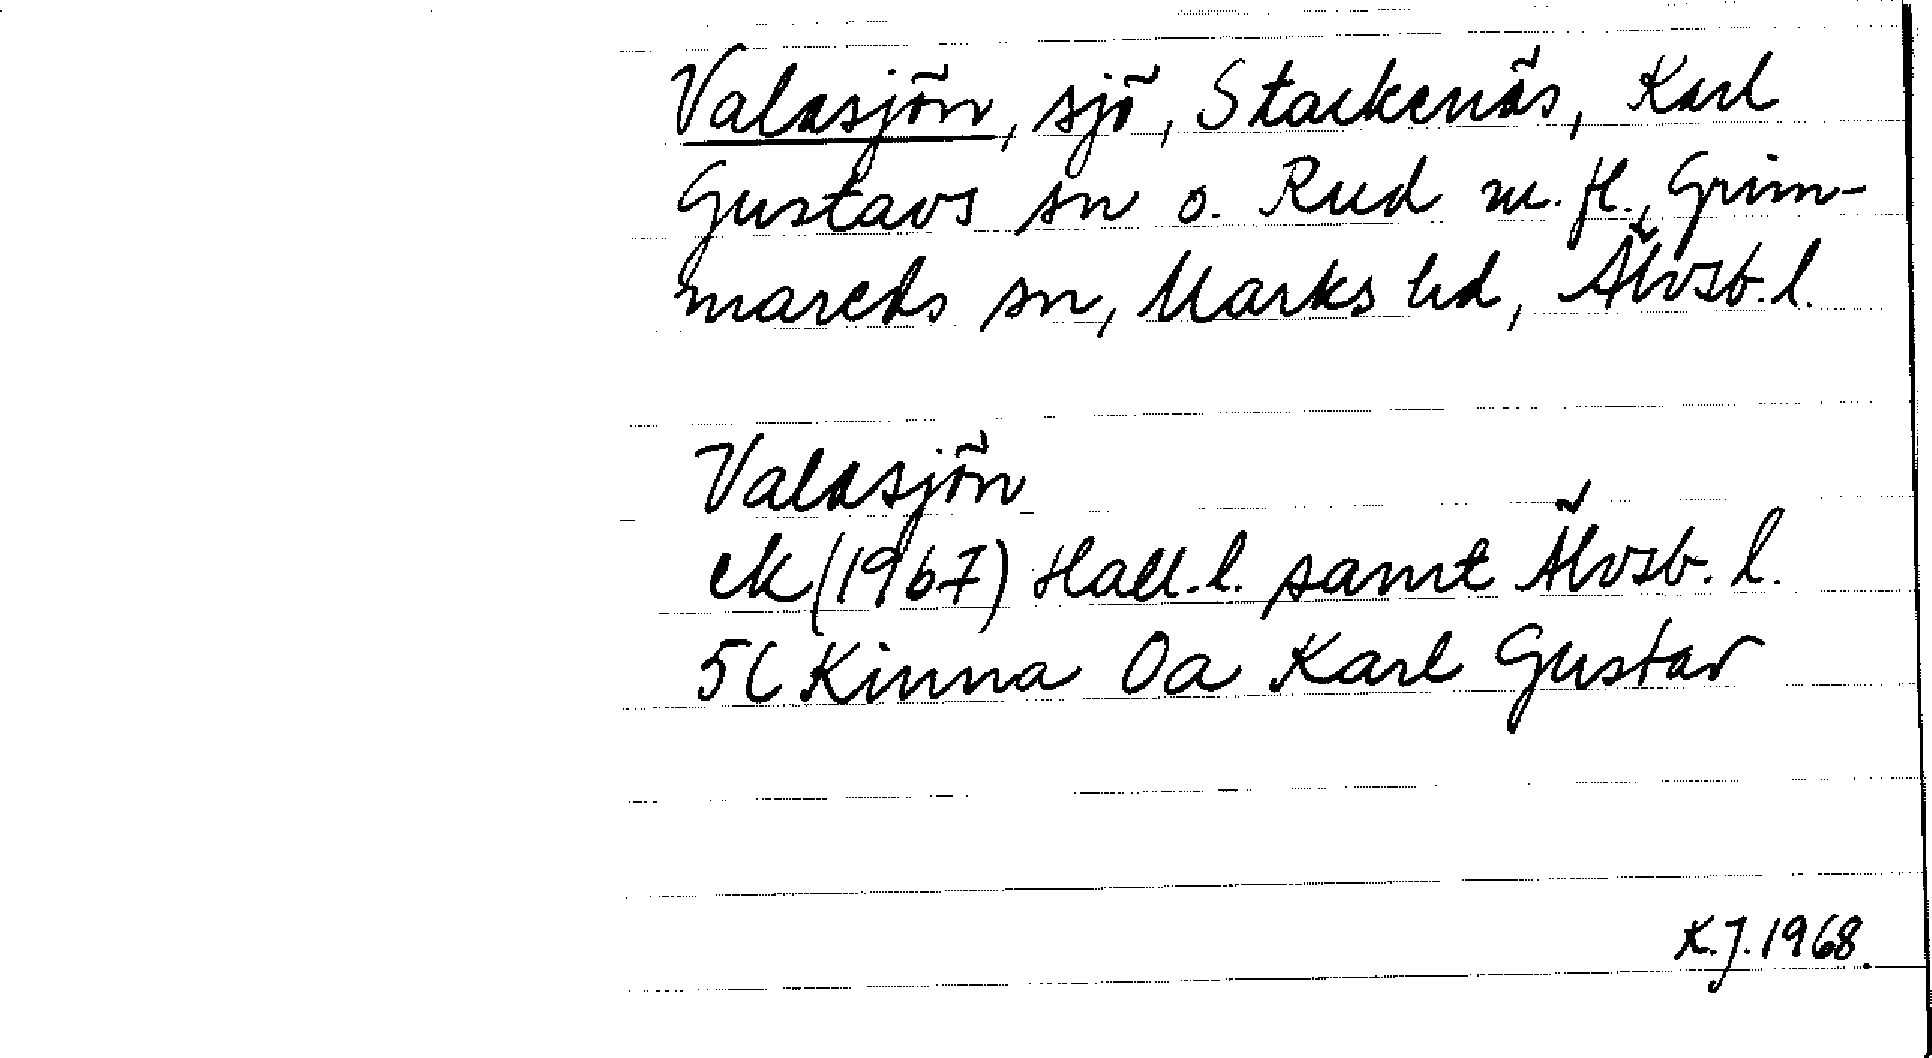 Valasjön, sjö, Stackenäs, Karl
Gustavs sn o. Rud m. fl., Grim-
mareds sn, Marks hd, Älvsb. l.
Valasjön
ek (1967) Hall. l. samt Älvsb. l.
5C Kinna 0a Karl Gustav
K.J. 1968.